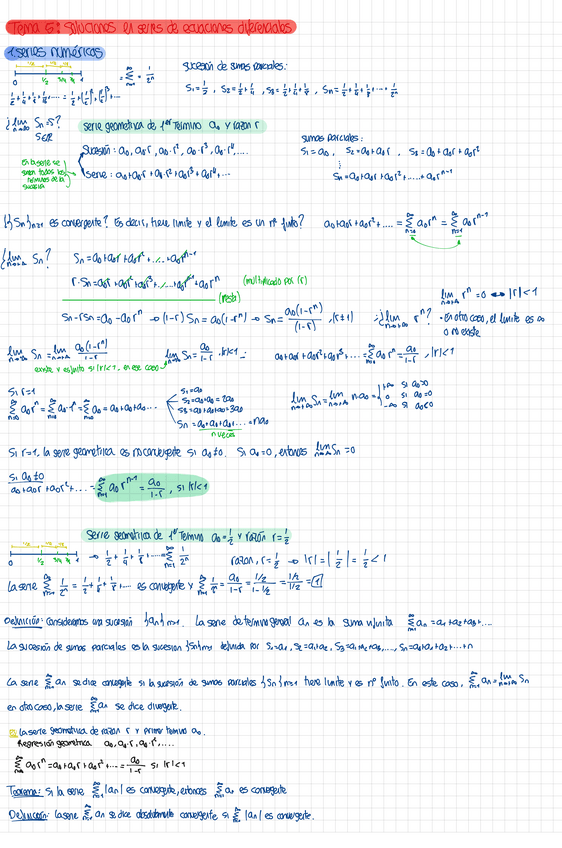 Tema 5: Soluciones en series de ecuaciones diferenciales
1. Series numéricas
0 1/2 3/4 1 = Σ_{n=1}^∞ 1/2^n
Sucesión de sumas parciales:
1/2 + 1/4 + 1/8 + ... = 1/2 + (1/2)^2 + (1/2)^3 + ...
S₁ = 1/2 , S₂ = 1/2 + 1/4 , S₃ = 1/2 + 1/4 + 1/8 , Sn = 1/2 + 1/4 + 1/8 + ... + 1/2^n
¿ lim_{n→∞} Sn = S?
S∈ℝ
Serie geométrica de 1er término a₀ y razón r
Sucesión: a₀, a₀·r, a₀·r², a₀·r³, a₀·r⁴, ...
Serie: a₀ + a₀r + a₀·r² + a₀r³ + a₀r⁴ + ...
En la serie se suman todos los términos de la sucesión
Sumas parciales:
S₁ = a₀ , S₂ = a₀ + a₀r , S₃ = a₀ + a₀r + a₀r²
Sn = a₀ + a₀r + a₀r² + ..... + a₀r^{n-1}
¿{Sn}n≥1 es convergente? Es decir, tiene limite y el limite es un nº finito? a₀ + a₀r + a₀r² + ... = Σ_{n=0}^∞ a₀r^n = Σ_{n=1}^∞ a₀r^{n-1}
¿ lim_{n→∞} Sn? Sn = a₀ + a₀r + a₀r² + ... + a₀r^{n-1}
r·Sn = a₀r + a₀r² + a₀r³ + ... + a₀r^n (multiplicado por (r)
(resta)
Sn - rSn = a₀ - a₀r^n → (1-r)Sn = a₀(1-r^n) → Sn = a₀(1-r^n)/(1-r) , (r≠1)
¿ lim_{n→∞} r^n?
lim_{n→∞} r^n = 0 ↔ |r|<1
· En otro caso, el limite es ∞ o no existe
lim_{n→∞} Sn = lim_{n→∞} a₀(1-r^n)/1-r lim_{n→∞} Sn = a₀/1-r . |r|<1 : a₀ + a₀r + a₀r² + a₀r³ + ... = Σ_{n=0}^∞ a₀r^n = a₀/1-r , |r|<1
existe y es finito si |r|<1. En ese caso
Si r=1
Σ_{n=0}^∞ a₀r^n = Σ_{n=0}^∞ a₀·1^n = Σ_{n=0}^∞ a₀ = a₀ + a₀ + a₀ ...
S₁ = a₀
S₂ = a₀ + a₀ = 2a₀
S₃ = a₀ + a₀ + a₀ = 3a₀
Sn = a₀ + a₀ + a₀ + ... = na₀
n veces
lim_{n→∞} Sn = lim_{n→∞} n a₀ = { +∞ si a₀>0
0 si a₀=0
-∞ si a₀<0
Si r=1, la serie geométrica es no convergente si a₀≠0. Si a₀=0, entonces lim_{n→∞} Sn = 0
Si a₀≠0
a₀ + a₀r + a₀r² + ... = Σ_{n=1}^∞ a₀ r^{n-1} = a₀/1-r , si |r|<1
Serie geométrica de 1er Término a₀ = 1/2 y razón r = 1/2
0 1/2 3/4 1 → 1/2 + 1/4 + 1/8 + ... = Σ_{n=1}^∞ 1/2^n razón, r = 1/2 → |r| = |1/2| = 1/2 < 1
La serie Σ_{n=1}^∞ 1/2^n = 1/2 + 1/4 + 1/8 + ... es convergente y Σ_{n=1}^∞ 1/2^n = a₀/1-r = 1/2/1-1/2 = 1/2/1/2 = 1
Definición: Consideramos una sucesión {an}n≥1. La serie de término general an es la suma infinita Σ_{n=1}^∞ an = a₁ + a₂ + a₃ + ...
La sucesión de sumas parciales es la sucesion {Sn}n≥1 definida por S₁=a₁, S₂=a₁+a₂, S₃=a₁+a₂+a₃, ..., Sn=a₁+a₂+a₃+...+n
La serie Σ_{n=1}^∞ an se dice convergente si la sucesión de sumas parciales {Sn}n≥1 tiene limite y es nº finito. En este caso, Σ_{n=1}^∞ an = lim_{n→∞} Sn
en otro caso, la serie Σ_{n=1}^∞ an se dice divergente.
La serie geométrica de razón r y primer término a₀.
geométrica a₀, a₀·r, a₀·r², ....
Σ_{n=0}^∞ a₀r^n = a₀ + a₀r + a₀r² + ... = a₀/1-r si |r|<1
Teorema: Si la serie Σ_{n=1}^∞ |an| es convergente, entonces Σ_{n=1}^∞ an es convergente
Definición: La serie Σ_{n=1}^∞ an se dice absolutamente convergente si Σ_{n=1}^∞ |an| es convergente.